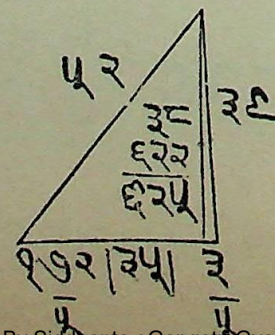 ५२
३९
३८
६२२
६२५
१७२ |३५| ३
५ ५